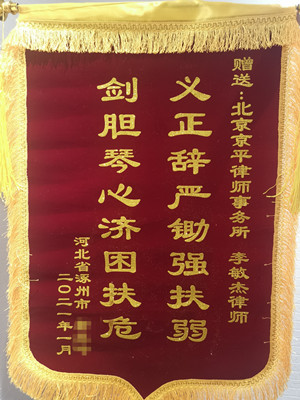 赠送：北京京平律师事务所 李敏杰律师
义正辞严锄强扶弱
剑胆琴心济困扶危
河北省涿州市
二〇二一年一月